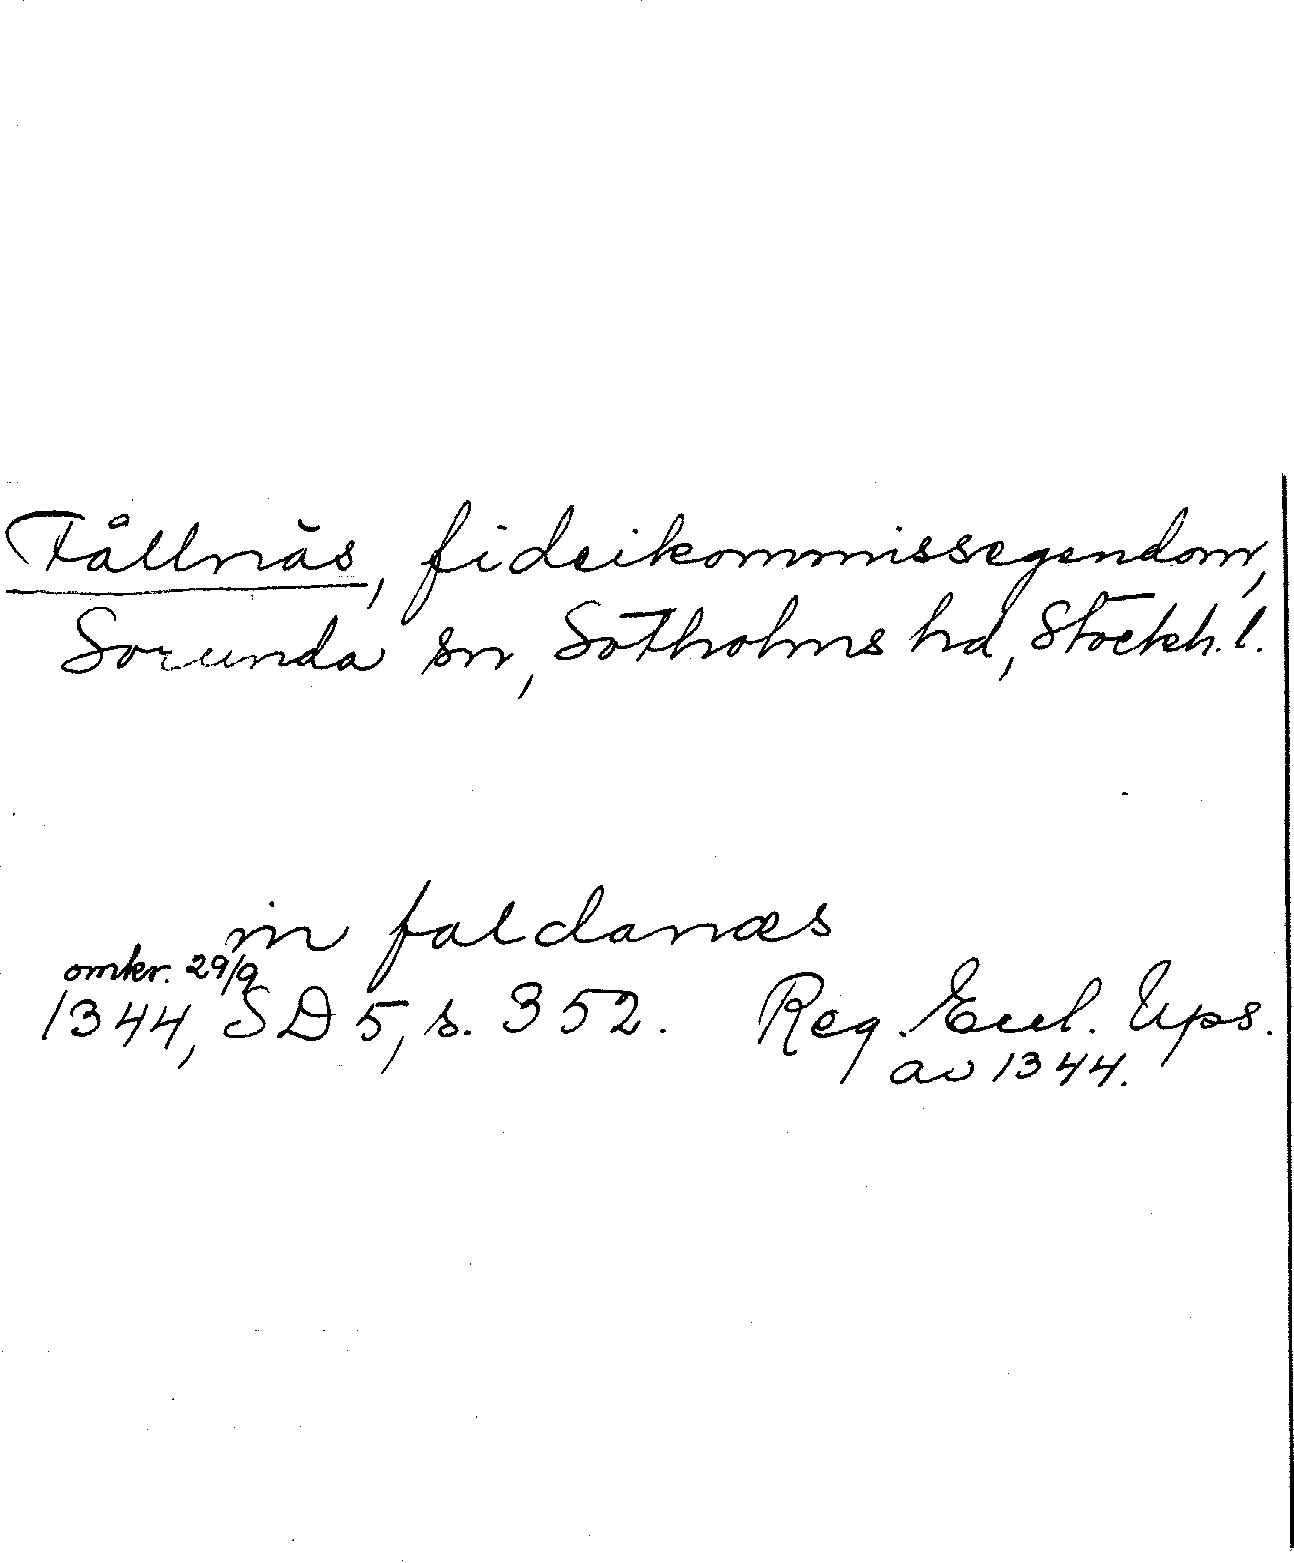 Fållnäs, fideikommissegendom,
Sorunda sn, Sotholms hd, Stockh. l.
in faldanæs
omkr. 29/9
1344, SD 5, s. 352. Reg. Eccl. Ups.
av 1344.